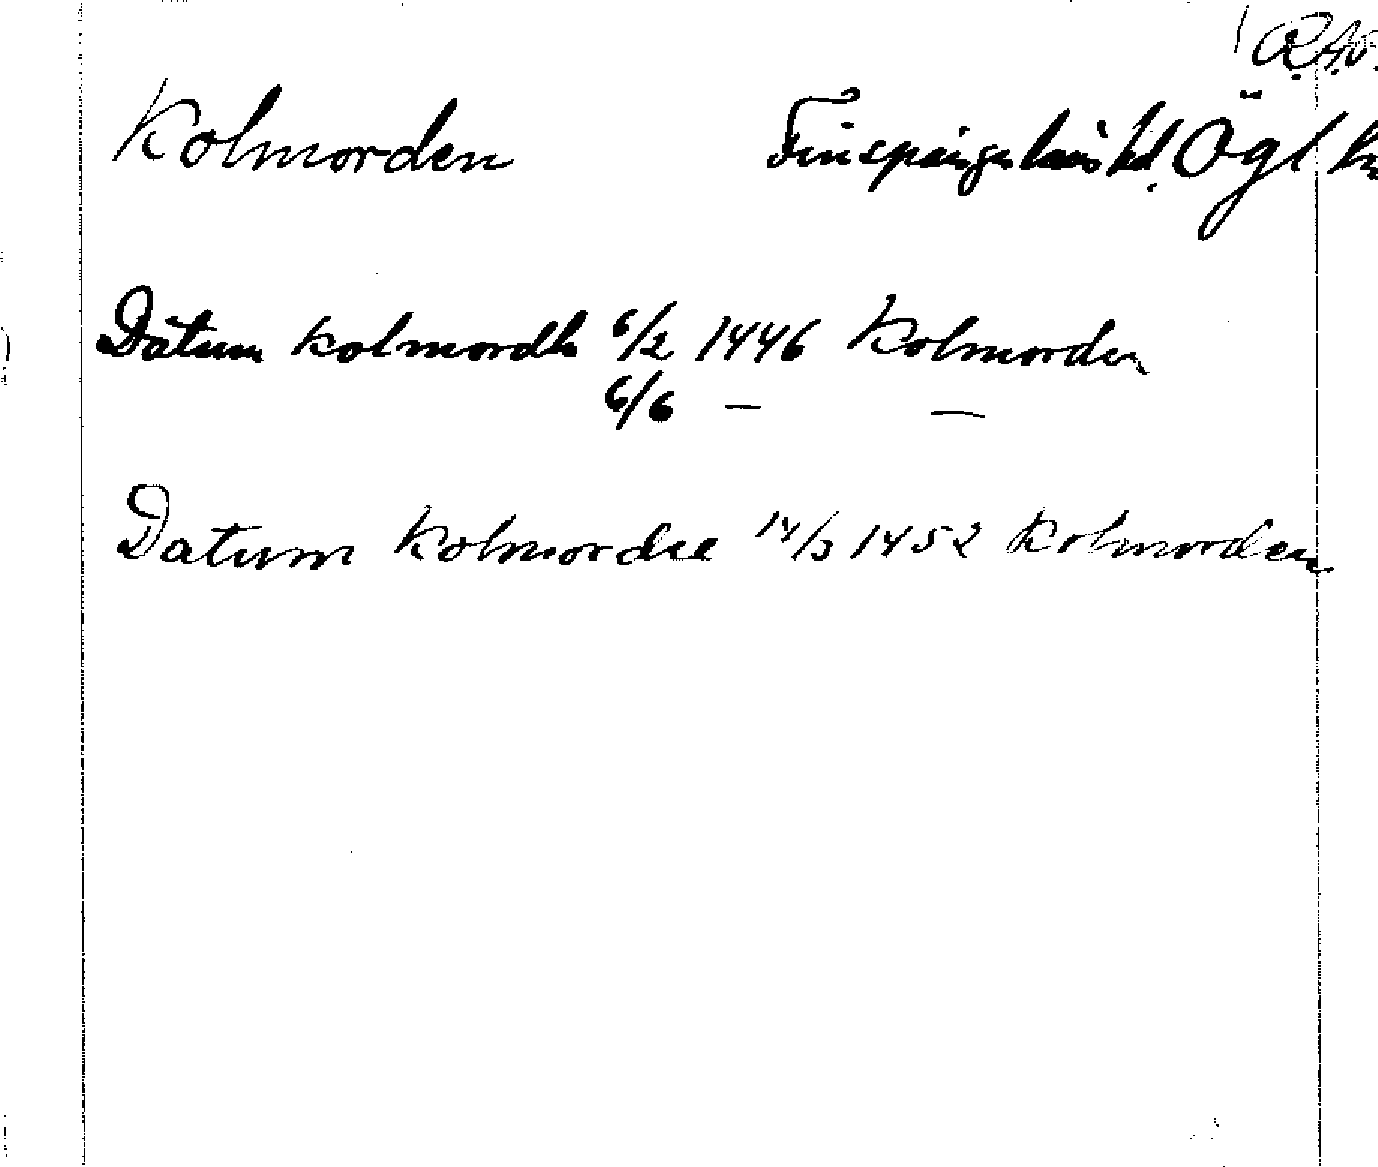 R.A.Ö.
Kolmorden Finspånga läns hd. Ögl
Datum kolmordh 6/2 1446 Kolmorden
6/6 — —
Datum Kolmordee 14/3 1452 Kolmorden